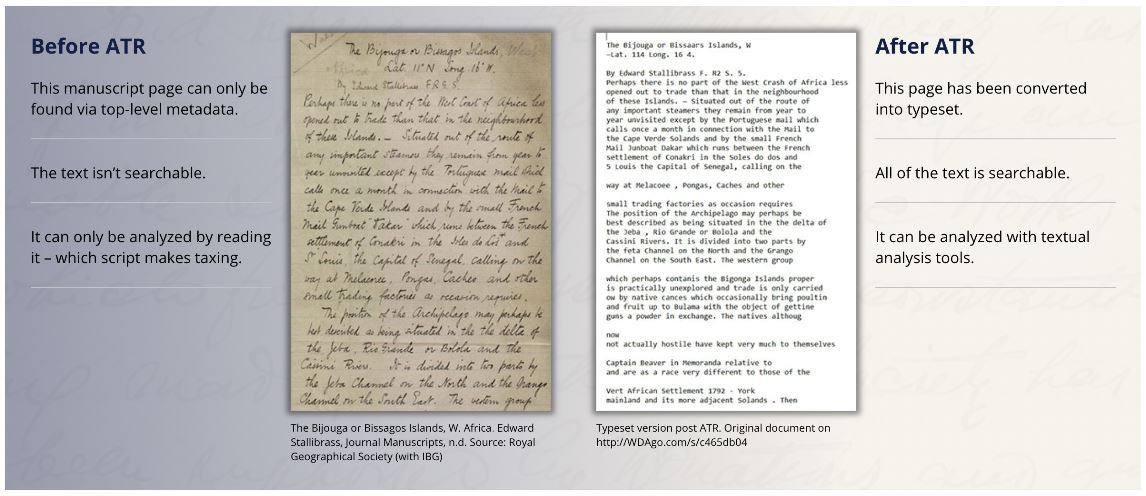 Before ATR
This manuscript page can only be
found via top-level metadata.
The text isn’t searchable.
It can only be analyzed by reading
it – which script makes taxing.
The Bijouga or Bissagos Islands, West
Africa Lat. 11°N Long. 16°W.
By Edward Stallibrass F.R.G.S.
Perhaps there is no part of the West Coast of Africa less
opened out to trade than that in the neighbourhood
of these Islands. – Situated out of the route of
any important steamers they remain from year to
year unvisited except by the Portuguese mail which
calls once a month in connection with the Mail to
the Cape Verde Islands and by the small French
Mail Gunboat "Dakar" which runs between the French
settlement of Conakri in the Isles de Los and
St Louis, the Capital of Senegal, calling on the
way at Melacoree, Pongas, Cacheo and other
small trading factories as occasion requires.
The position of the Archipelago may perhaps be
best described as being situated in the the delta of
the Jeba, Rio Grande or Bolola and the
Cassini Rivers. It is divided into two parts by
the Jeba Channel on the North and the Orango
Channel on the South East. The western group
The Bijouga or Bissagos Islands, W. Africa. Edward
Stallibrass, Journal Manuscripts, n.d. Source: Royal
Geographical Society (with IBG)
The Bijouga or Bissaars Islands, W
—Lat. 114 Long. 16 4.
By Edward Stallibrass F. R2 S. 5.
Perhaps there is no part of the West Crash of Africa less
opened out to trade than that in the neighbourhood
of these Islands. — Situated out of the route of
any important steamers they remain from year to
year unvisited except by the Portuguese mail which
calls once a month in connection with the Mail to
the Cape Verde Solands and by the small French
Mail Junboat Dakar which runs between the French
settlement of Conakri in the Soles do dos and
5 Louis the Capital of Senegal, calling on the
way at Melacoee , Pongas, Caches and other
small trading factories as occasion requires
The position of the Archipelago may perhaps be
best described as being situated in the the delta of
the Jeba , Rio Grande or Bolola and the
Cassini Rivers. It is divided into two parts by
the feta Channel on the North and the Grango
Channel on the South East. The western group
which perhaps contanis the Bigonga Islands proper
is practically unexplored and trade is only carried
ow by native cances which occasionally bring poultin
and fruit up to Bulama with the object of gettine
guns a powder in exchange. The natives althoug
now
not actually hostile have kept very much to themselves
Captain Beaver in Memoranda relative to
and are as a race very different to those of the
Vert African Settlement 1792 - York
mainland and its more adjacent Solands . Then
Typeset version post ATR. Original document on
http://WDAgo.com/s/c465db04
After ATR
This page has been converted
into typeset.
All of the text is searchable.
It can be analyzed with textual
analysis tools.